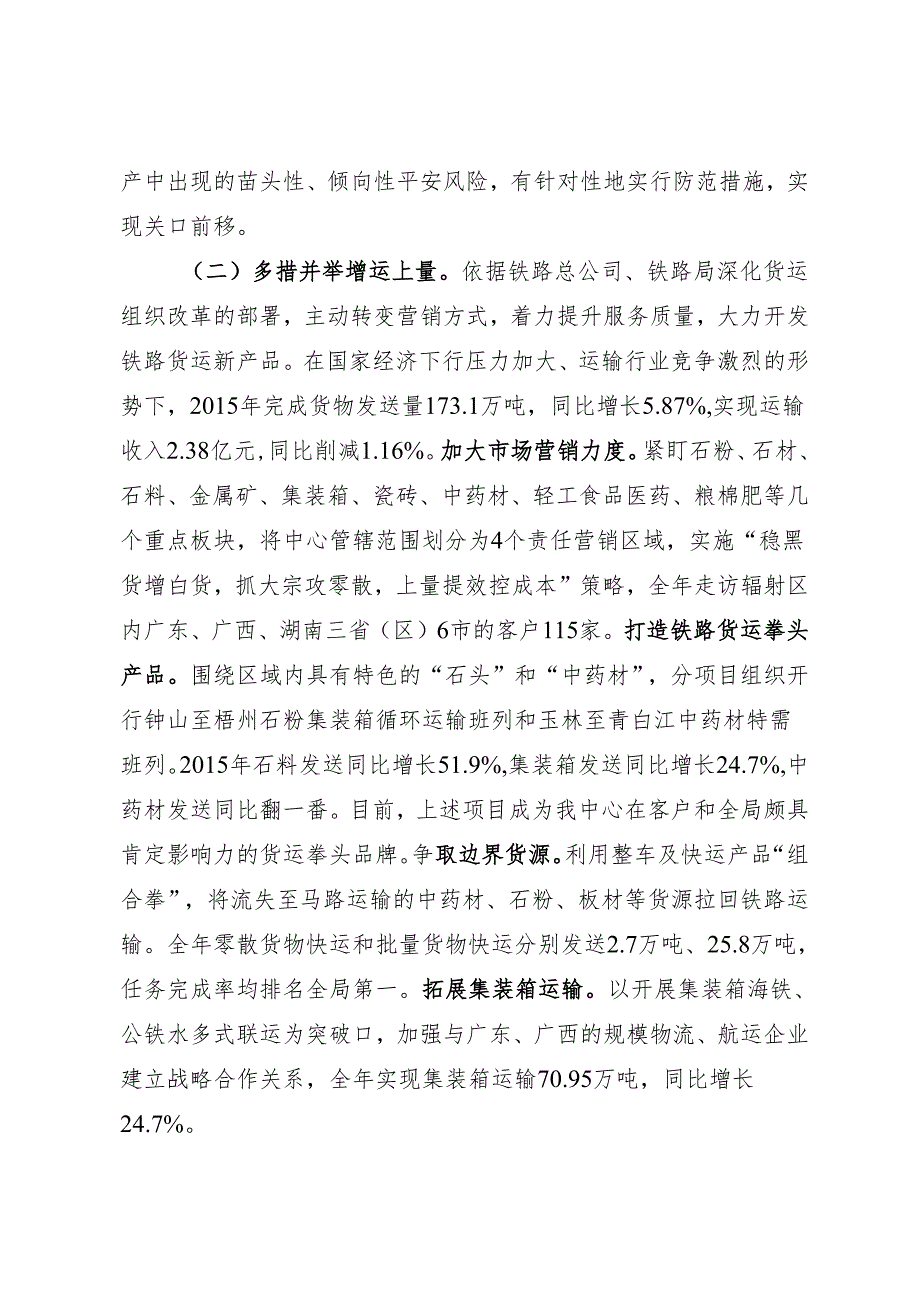 产中出现的苗头性、倾向性平安风险，有针对性地实行防范措施，实
现关口前移。
（二）多措并举增运上量。依据铁路总公司、铁路局深化货运
组织改革的部署，主动转变营销方式，着力提升服务质量，大力开发
铁路货运新产品。在国家经济下行压力加大、运输行业竞争激烈的形
势下，2015年完成货物发送量173.1万吨，同比增长5.87%,实现运输
收入2.38亿元,同比削减1.16%。加大市场营销力度。紧盯石粉、石材、
石料、金属矿、集装箱、瓷砖、中药材、轻工食品医药、粮棉肥等几
个重点板块，将中心管辖范围划分为4个责任营销区域，实施“稳黑
货增白货，抓大宗攻零散，上量提效控成本”策略，全年走访辐射区
内广东、广西、湖南三省（区）6市的客户115家。打造铁路货运拳头
产品。围绕区域内具有特色的“石头”和“中药材”，分项目组织开
行钟山至梧州石粉集装箱循环运输班列和玉林至青白江中药材特需
班列。2015年石料发送同比增长51.9%,集装箱发送同比增长24.7%,中
药材发送同比翻一番。目前，上述项目成为我中心在客户和全局颇具
肯定影响力的货运拳头品牌。争取边界货源。利用整车及快运产品“组
合拳”，将流失至马路运输的中药材、石粉、板材等货源拉回铁路运
输。全年零散货物快运和批量货物快运分别发送2.7万吨、25.8万吨，
任务完成率均排名全局第一。拓展集装箱运输。以开展集装箱海铁、
公铁水多式联运为突破口，加强与广东、广西的规模物流、航运企业
建立战略合作关系，全年实现集装箱运输70.95万吨，同比增长
24.7%。